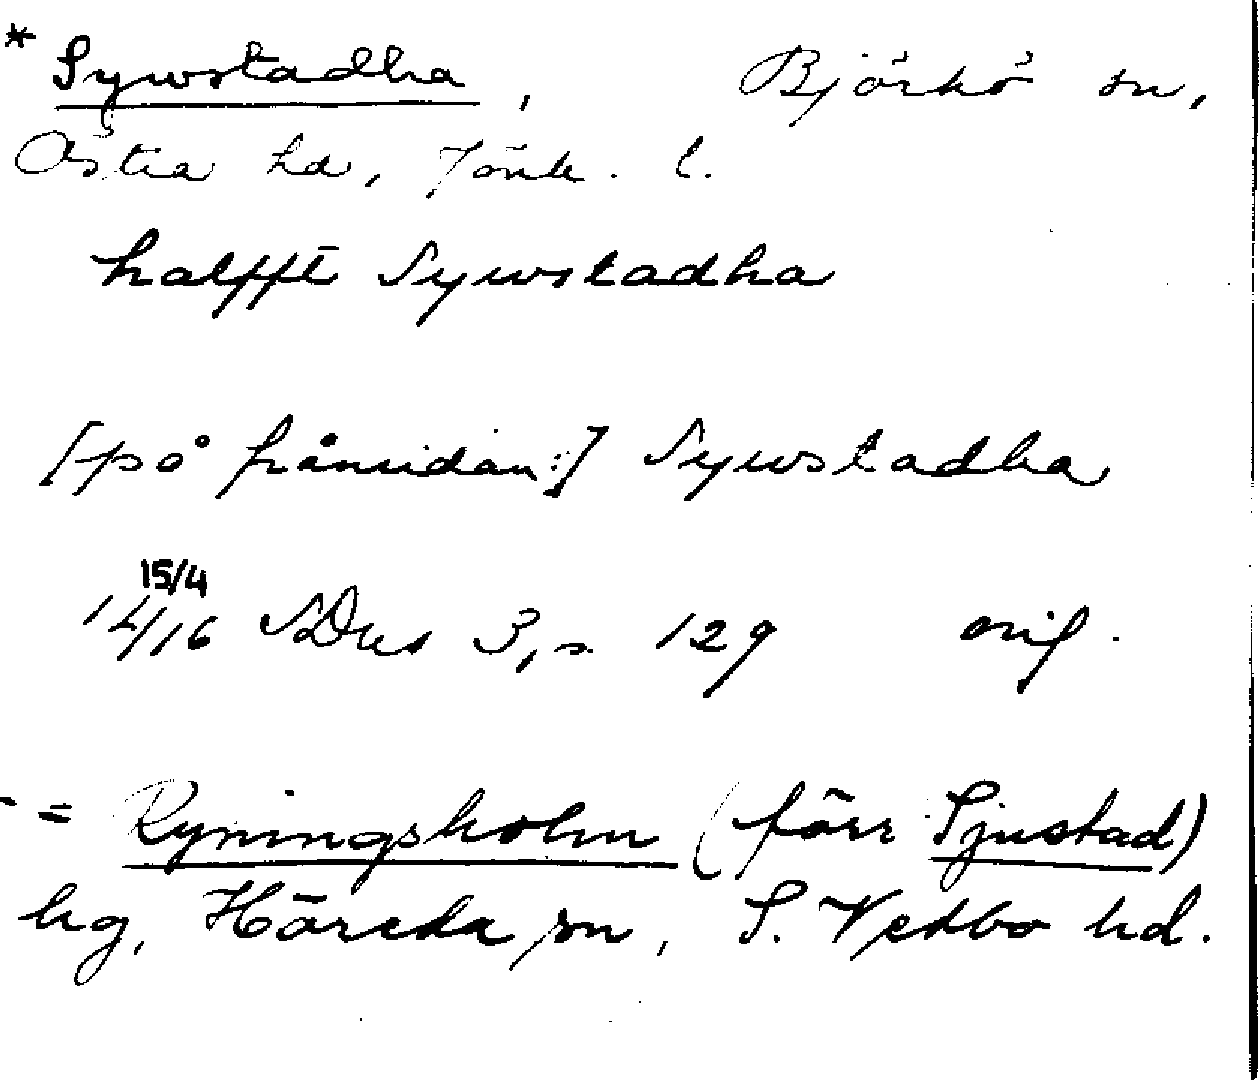 * Sywstadha, Björkö sn,
Östra hd, Jönk. l.
halfft Sywstadha
[på frånsidan:] Sywstadha
15/4
14/16 SDns 3, s. 129 orig.
- = Ryningsholm (förr Sjustad)
hg, Höreda sn, S. Vedbo hd.